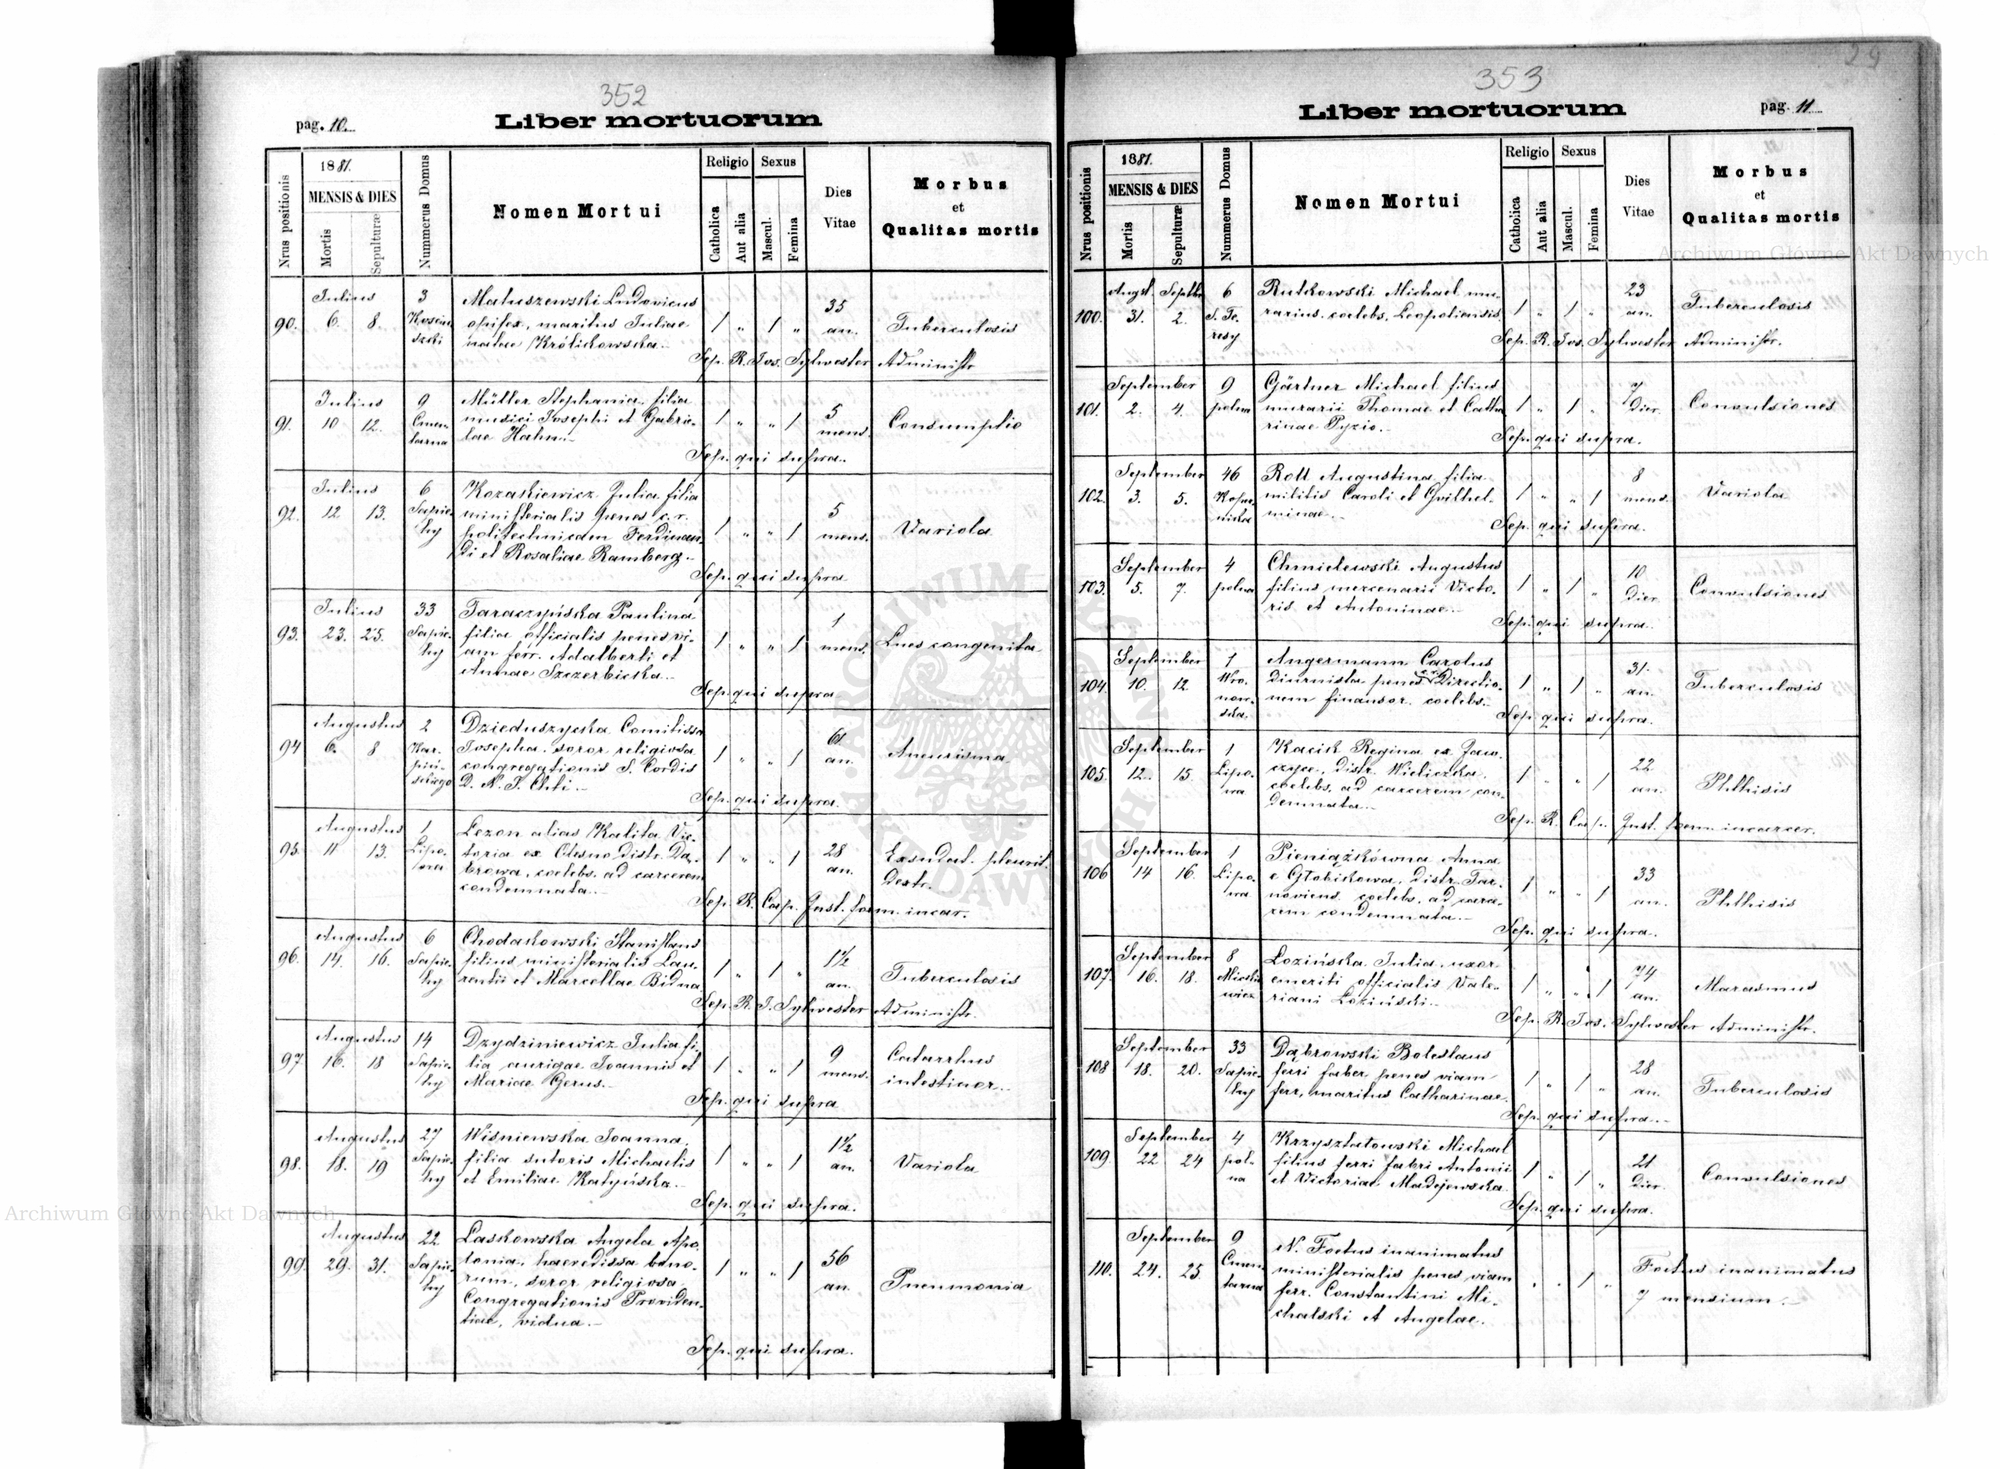 352
pag. 10.
Liber mortuorum
Nrus positionis
1881.
MENSIS & DIES
Mortis
Sepulturæ
Nummerus Domus
Nomen Mortui
Religio
Catholica
Aut alia
Sexus
Mascul.
Femina
Dies
Vitae
Morbus
et
Qualitas mortis
90.
Julius
6. 8.
3
Matuszewski Ludovicus
opifex, maritus Juliae
natae Królikowska.
1 " 1 "
35
an.
Tuberculosis
Sep. R. Jos. Sylwester Administr
91.
Julius
10 12.
9
Cmen-
tarna
Müller Stephania, filia
medici Josephi et Gabrie-
lae Hahn.
1 " " 1
5
mens.
Consumptio
Sep. qui supra.
92.
Julius
12 13.
6
Sapie-
hy
Kozakiewicz Julia filia
ministerialis penes c. r.
politechnicam Ferdinan-
di et Rosaliae Ramberg.
1 " " 1
5
mens.
Variola
Sep. qui supra
93.
Julius
23. 25.
33
Sapie-
hy
Taraczyńska Paulina
filia officialis penes vi-
am ferr. Adalberti et
Annae Szczerbicka.
1 " " 1
1
mens.
Lues congenita
Sep. qui supra
94
Augustus
6. 8
2
Kar-
piń-
skiego
Dzieduszycka Comitissa
Josepha, soror religiosa
congregationis S. Cordis
D. N. J. Chti.
1 " " 1
61
an.
Aneurisma
Sep. qui supra.
95.
Augustus
11 13.
1
Lipo-
wa
Lezon alias Kalita Vic-
toria ex Olesno distr. Dą-
browa, coelebs, ad carcerem
condemnata.
1 " " 1
28
an.
Exsudat. pleurit.
dextr.
Sep. R. Casp. Inst. fem. incar.
96.
Augustus
14. 16.
6
Sapie-
hy
Chodakowski Stanislaus
filius ministerialis Lau-
rentii et Marcellae Bidna
1 " 1 "
1½
an.
Tuberculosis
Sep. R. J. Sylwester Administr.
97.
Augustus
16. 18
14
Sapie-
hy
Dzydziniewicz Julia fi-
lia aurigae Joannis et
Mariae Gerus.
1 " " 1
9
mens.
Catarrhus
intestinor.
Sep. qui supra
98.
Augustus
18. 19
27
Sapie-
hy
Wiśniewska Joanna,
filia sutoris Michaelis
et Emiliae Katyńska.
1 " " 1
1½
an.
Variola
Sep. qui supra.
99.
Augustus
29. 31.
22
Sapie-
hy
Laskowska Angela Apo-
lonia, haeredissa bono-
rum, soror religiosa
Congregationis Providen-
tiae, vidua.
1 " " 1
56
an.
Pneumonia
Sep. qui supra.
29
353
Liber mortuorum
pag. 11
Nrus positionis
1881.
MENSIS & DIES
Mortis
Sepulturæ
Nummerus Domus
Nomen Mortui
Religio
Catholica
Aut alia
Sexus
Mascul.
Femina
Dies
Vitae
Morbus
et
Qualitas mortis
100.
Augst. Septbr
31. 2.
6
S. Te-
resy
Rutkowski Michael mu-
rarius, coelebs, Leopoliensis
1 " 1 "
23
an.
Tuberculosis
Sep. R. Jos. Sylwester Administr.
101.
September
2. 4.
9
polna
Gärtner Michael filius
murarii Thomae et Catha
rinae Pyzio.
1 " 1 "
7
dier.
Convulsiones
Sep. qui supra.
102.
September
3. 5.
46
Koper-
nika
Roll Augustina filia
militis Caroli et Guilhel-
minae.
1 " " 1
8
mens.
Variola
Sep. qui supra.
103.
September
5. 7.
4
polna
Chmielewski Augustus
filius mercenarii Victo-
ris et Antoninae.
1 " 1 "
10
dier
Convulsiones
Sep. qui supra.
104.
September
10. 12.
1
Wro-
now-
ska.
Angermann Carolus
diurnista penes Directio-
nem finansor. coelebs.
1 " 1 "
31.
an.
Tuberculosis
Sep. qui supra.
105.
September
12. 15.
1
Lipo-
wa
Kacik Regina ex Jaw-
czyce, distr. Wieliczka,
coelebs, ad carcerem con-
demnata.
1 " " 1
22
an.
Phthisis
Sep. R. Casp. Inst. fem. incarcer.
106
September
14 16.
1
Lipo-
wa
Pieniążkówna Anna
e Głobikowa, distr. Tar-
noviens. coelebs, ad carce-
rem condemnata.
1 " " 1
33
an.
Phthisis
Sep. qui supra.
107.
September
16. 18.
8
Mickie
wicz
Lozińska Julia, uxor
emeriti officialis Vale-
riani Loziński.
1 " " 1
74
an.
Marasmus
Sep. R. Jos. Sylwester Administr.
108
September
18. 20.
33
Sapie-
hy
Dąbrowski Boleslaus
ferri faber penes viam
ferr. maritus Catharinae.
1 " 1 "
28
an.
Tuberculosis
Sep. qui supra.
109.
September
22 24
4
pol-
na
Krzyształowski Michael
filius ferri fabri Antonii
et Victoriae Madejewska.
1 " 1 "
21
dier.
Convulsiones
Sep. qui supra.
110.
September
24. 25.
9
Cmen-
tarna
N. Foetus inanimatus
ministerialis penes viam
ferr. Constantini Mi-
chalski et Angelae.
" " 1 "
Foetus inanimatus
7 mensium.
Archiwum Główne Akt Dawnych
Archiwum Główne Akt Dawnych
ARCHIWUM AKT DAWNYCH